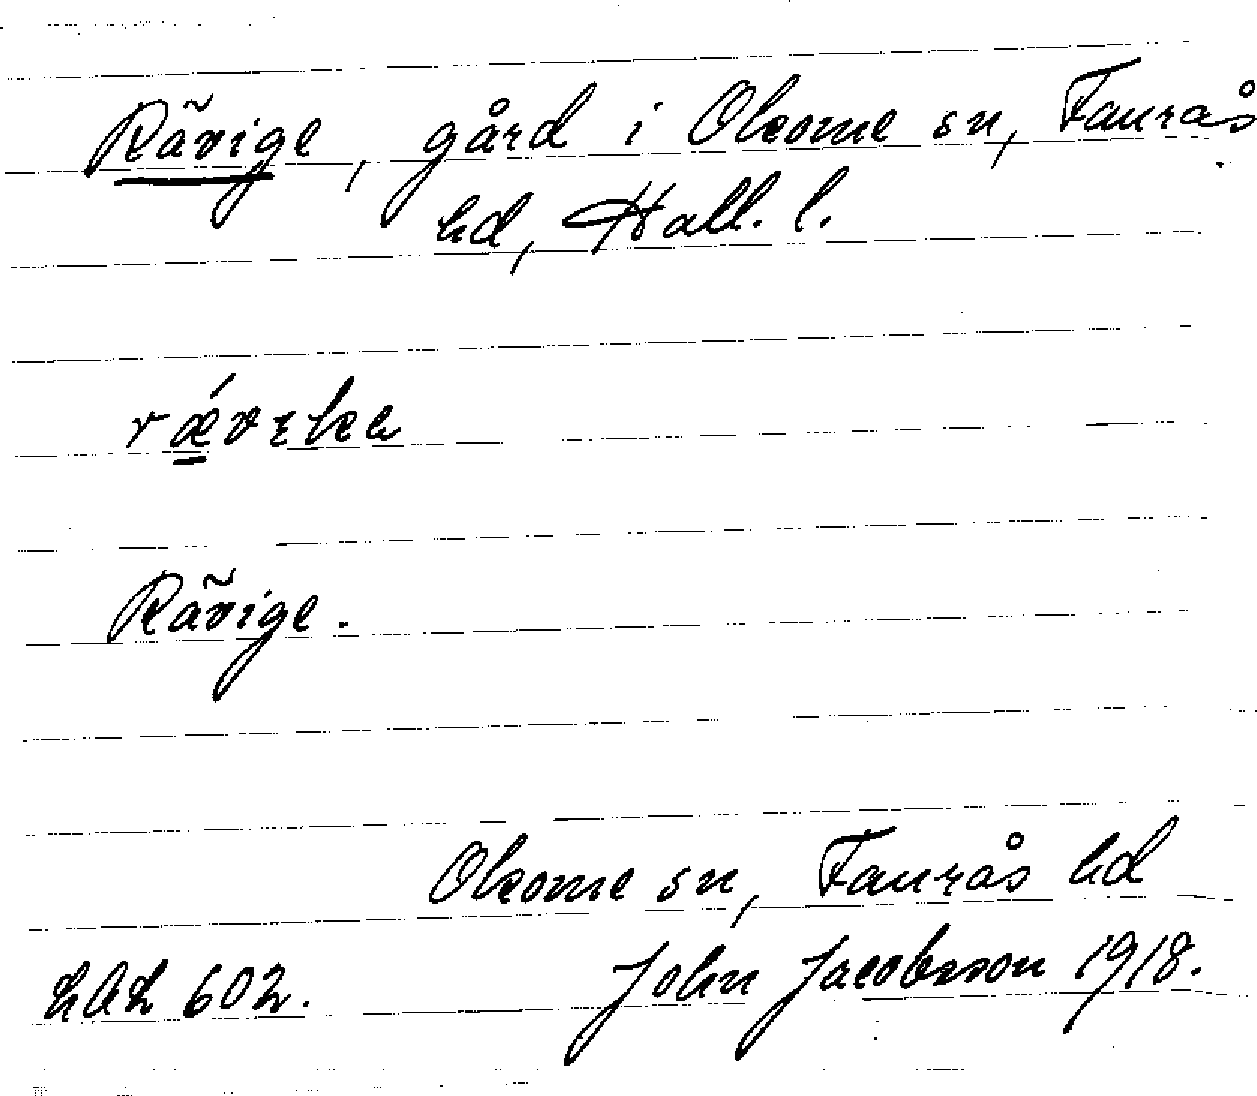 Rävige, gård i Okome sn, Faurås
hd, Hall. l.
Rävige.
Okome sn, Faurås hd
602. John Jacobsson 1918.